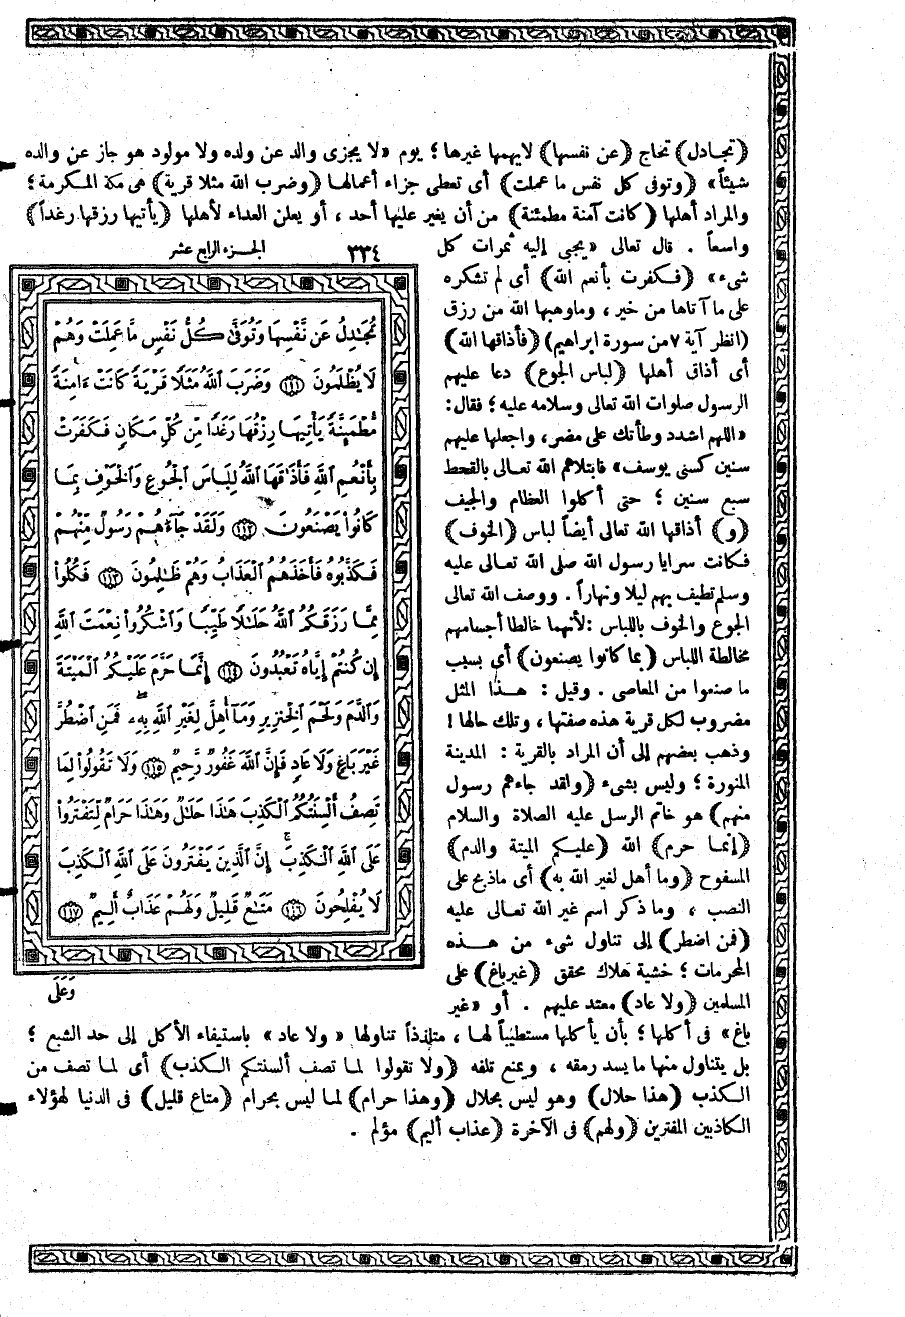 (تجادل) تحاج (عن نفسها) لايهمها غيرها ؛ يوم «لا يجزى والد عن ولده ولا مولود هو جاز عن والده
شيئاً» (وتوفى كل نفس ما عملت) أى تعطى جزاء أعمالها (وضرب الله مثلا قرية) هى مكة المكرمة ؛
والمراد أهلها (كانت آمنة مطمئنة) من أن يغير عليها أحد ، أو يعلن العداء لأهلها (يأتيها رزقها رغداً)
واسعاً . قال تعالى «يجبى إليه ثمرات كل
شىء» (فكفرت بأنعم الله) أى لم تشكره
على ما آتاها من خير ، وماوهبها الله من رزق
(انظر آية ٧ من سورة ابراهيم) (فأذاقها الله)
أى أذاق أهلها (لباس الجوع) دعا عليهم
الرسول صلوات الله تعالى وسلامه عليه ؛ فقال :
«اللهم اشدد وطأتك على مضر ، واجعلها عليهم
سنين كسنى يوسف» فابتلاهم الله تعالى بالقحط
سبع سنين ؛ حتى أكلوا العظام والجيف
(و) أذاقها الله تعالى أيضاً لباس (الخوف)
فكانت سرايا رسول الله صلى الله تعالى عليه
وسلم تطيف بهم ليلا ونهاراً . ووصف الله تعالى
الجوع والخوف باللباس : لأنهما خالطا أجسامهم
مخالطة اللباس (بما كانوا يصنعون) أى بسبب
ما صنعوا من المعاصى . وقيل : هذا المثل
مضروب لكل قرية هذه صفتها ، وتلك حالها !
وذهب بعضهم إلى أن المراد بالقرية : المدينة
المنورة ؛ وليس بشىء (ولقد جاءهم رسول
منهم) هو خاتم الرسل عليه الصلاة والسلام
(إنما حرم) الله (عليكم الميتة والدم)
المسفوح (وما أهل لغير الله به) أى ماذبح على
النصب ، وما ذكر اسم غير الله تعالى عليه
(فمن اضطر) إلى تناول شىء من هذه
المحرمات ؛ خشية هلاك محقق (غير باغ) على
المسلمين (ولا عاد) معتد عليهم . أو «غير
٣٣٤ الجزء الرابع عشر
تُجَٰدِلُ عَن نَّفْسِهَا وَتُوَفَّىٰ كُلُّ نَفْسٍ مَّا عَمِلَتْ وَهُمْ
لَا يُظْلَمُونَ ﴿١١١﴾ وَضَرَبَ ٱللَّهُ مَثَلًا قَرْيَةً كَانَتْ ءَامِنَةً
مُّطْمَئِنَّةً يَأْتِيهَا رِزْقُهَا رَغَدًا مِّن كُلِّ مَكَانٍ فَكَفَرَتْ
بِأَنْعُمِ ٱللَّهِ فَأَذَٰقَهَا ٱللَّهُ لِبَاسَ ٱلْجُوعِ وَٱلْخَوْفِ بِمَا
كَانُوا۟ يَصْنَعُونَ ﴿١١٢﴾ وَلَقَدْ جَآءَهُمْ رَسُولٌ مِّنْهُمْ
فَكَذَّبُوهُ فَأَخَذَهُمُ ٱلْعَذَابُ وَهُمْ ظَٰلِمُونَ ﴿١١٣﴾ فَكُلُوا۟
مِمَّا رَزَقَكُمُ ٱللَّهُ حَلَٰلًا طَيِّبًا وَٱشْكُرُوا۟ نِعْمَتَ ٱللَّهِ
إِن كُنتُمْ إِيَّاهُ تَعْبُدُونَ ﴿١١٤﴾ إِنَّمَا حَرَّمَ عَلَيْكُمُ ٱلْمَيْتَةَ
وَٱلدَّمَ وَلَحْمَ ٱلْخِنزِيرِ وَمَآ أُهِلَّ لِغَيْرِ ٱللَّهِ بِهِۦ فَمَنِ ٱضْطُرَّ
غَيْرَ بَاغٍ وَلَا عَادٍ فَإِنَّ ٱللَّهَ غَفُورٌ رَّحِيمٌ ﴿١١٥﴾ وَلَا تَقُولُوا۟ لِمَا
تَصِفُ أَلْسِنَتُكُمُ ٱلْكَذِبَ هَٰذَا حَلَٰلٌ وَهَٰذَا حَرَامٌ لِّتَفْتَرُوا۟
عَلَى ٱللَّهِ ٱلْكَذِبَ ۚ إِنَّ ٱلَّذِينَ يَفْتَرُونَ عَلَى ٱللَّهِ ٱلْكَذِبَ
لَا يُفْلِحُونَ ﴿١١٦﴾ مَتَٰعٌ قَلِيلٌ وَلَهُمْ عَذَابٌ أَلِيمٌ ﴿١١٧﴾
وَعَلَى
باغ» فى أكلها ؛ بأن يأكلها مستطيباً لها ، متلذذاً تناولها « ولا عاد » باستيفاء الأكل إلى حد الشبع ؛
بل يتناول منها ما يسد رمقه ، ويمنع تلفه (ولا تقولوا لما تصف ألسنتكم الكذب) أى لما تصف من
الكذب (هذا حلال) وهو ليس بحلال (وهذا حرام) لما ليس بحرام (متاع قليل) فى الدنيا لهؤلاء
الكاذبين المفترين (ولهم) فى الآخرة (عذاب أليم) مؤلم .